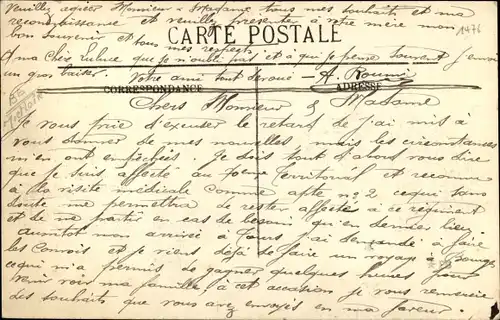 Veuillez agréer Monsieur & Madame tous mes souhaits et ma
reconnaissance et veuillez presenter à votre mère mon
bon souvenir et tous mes respects.
CARTE POSTALE
1476
A ma Chèr Lulue que je n'oubli pas et à qui je pense souvent j'envoi
un gros baiser. Votre ami tout dévoué - A. Roumi
CORRESPONDANCE
ADRESSE
Chers Monsieur & Madame
Je vous prie d'excuser le retard de j'ai mis à
vous donner de mes nouvelles mais les circonstances
m'en ont empêchées. Je dois tout d'abord vous dire
que je suis affecté au Territorial et reconnu
à la visite médicale comme apte no 2 ce qui sans
doute me permettra de rester affectés a ce régiment
et de ne partir en cas de besoin qu'en dernier lieu.
aussitot mon arrivée à Tours j'ai demandé à faire
les convois et je viens déjà de faire un voyage à Bourges
ce qui m'a permis de gagner quelques heures pour
venir voir ma famille à cet occasion je vous remercie
des souhaits que vous avez envoyés en ma faveur.